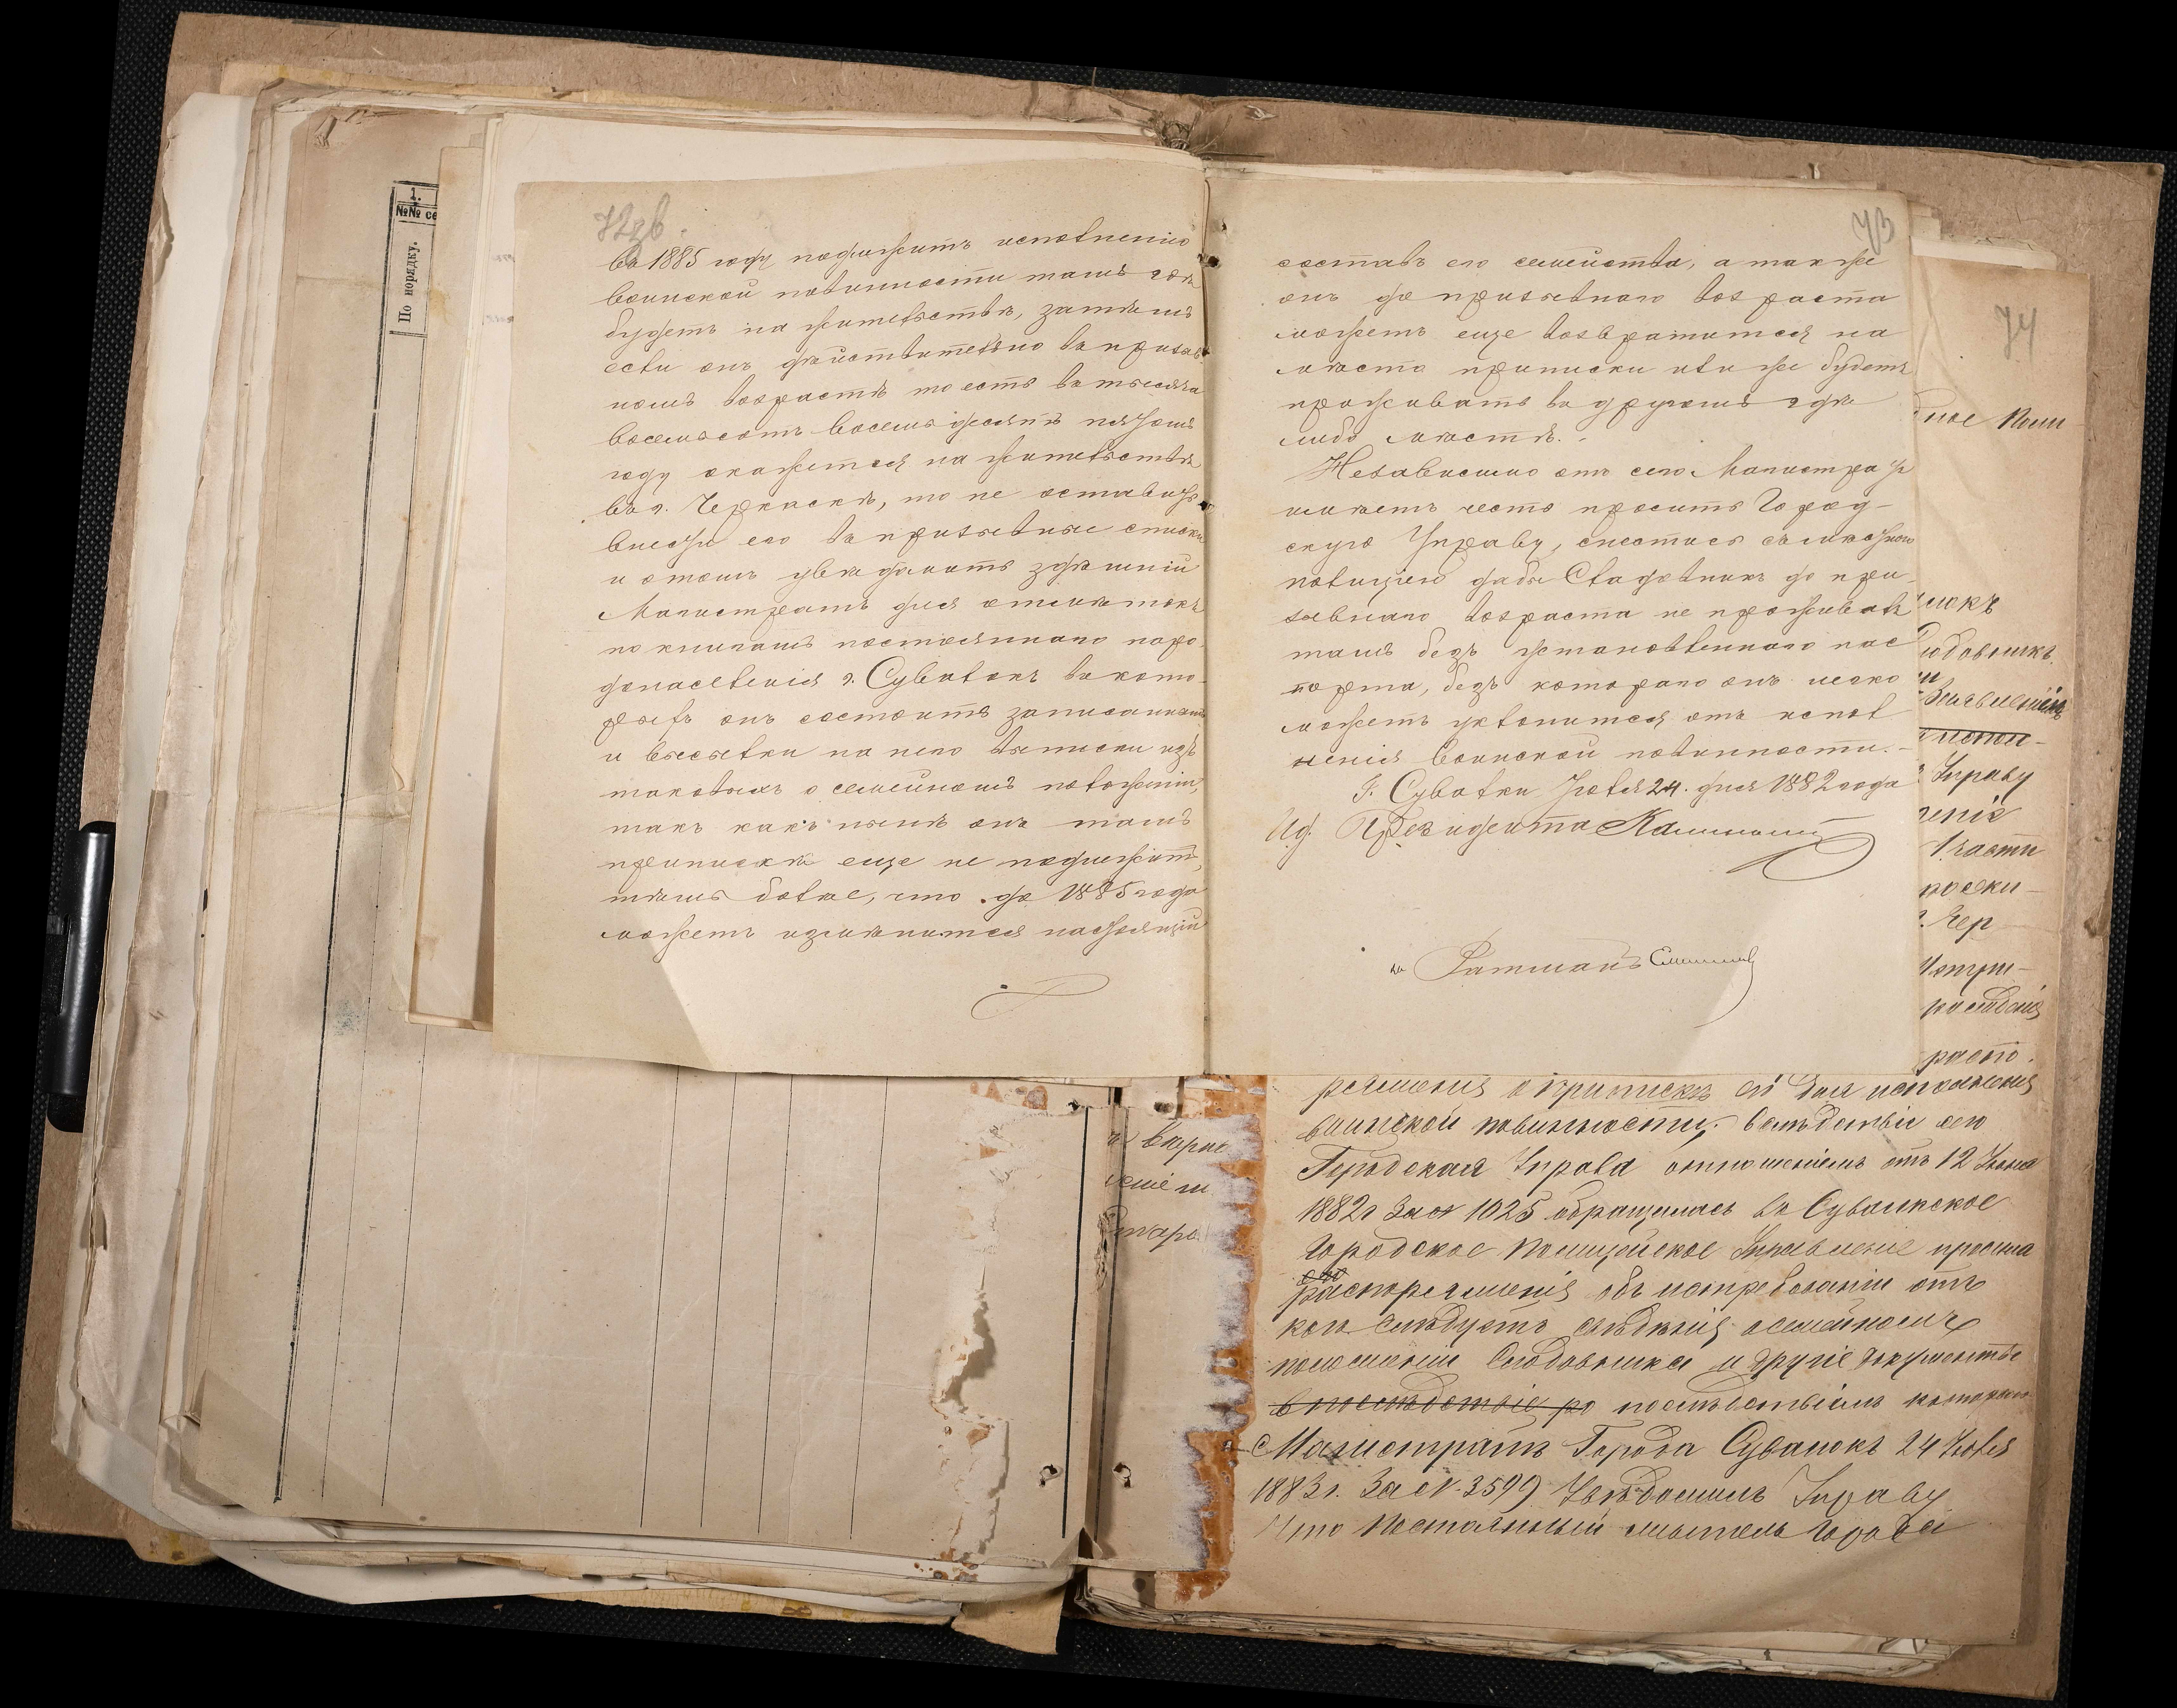 1.
№№ се
По порядку.
72 об.
въ 1885 году подлежитъ исполненію
воинской повинности тамъ гдѣ
будетъ на жительствѣ, затѣмъ
если онъ дѣйствительно въ призыв
номъ возрастѣ то есть въ тысяча
восемьсотъ восемьдесятъ пятомъ
году окажется на жительствѣ
въ г. Черкаскѣ, то не оставить
внести его въ призывные списки
и отомъ увѣдомить здѣшній
Магистратъ для отмѣтокъ
по книгамъ постояннаго наро-
донаселенія г. Сувалокъ въ кото-
рыхъ онъ состоитъ записаннымъ
и высылки на него выписки изъ
таковыхъ о семейномъ положеніи,
такъ какъ нынѣ онъ тамъ
припискѣ еще не подлежитъ,
тѣмъ болѣе, что до 1885 года
можетъ измѣнится настоящій
73
составъ его семейства, а также
онъ до призывнаго возраста
можетъ еще возвратится на
мѣсто приписки или же будетъ
проживать въ другомъ гдѣ
либо мѣстѣ.
Независимо отъ сего Магистратъ
имѣетъ честь просить Город-
скую Управу, снестись съ мѣстною
полиціею дабы Сладовникъ до при-
зывнаго возраста не проживалъ
тамъ безъ установленнаго пас
порта, безъ котораго онъ легко
можетъ уклонится отъ испол
ненія воинской повинности.
Г. Сувалки Іюля 24 дня 1882 года
Ид. Президента
Ратманъ
74
ное Поли
локъ
Сюдовникъ
Управу
еніе
1 части
Чер
раство.
ряженія о припискѣ его для исполненія
воинской повинности. Вслѣдствіе сего
Городская Управа отношеніемъ отъ 12 Іюня
1882 г за № 1025 обращалась въ Сувалкское
Городское Полицейское Управленіе прося
распоряженія объ истребованіи отъ
кого слѣдуетъ свѣдѣнія о семейномъ
положеніи Сюдовника и другіе документы
впослѣдствіе ро послѣдствіемъ которыхъ
Магистратъ Города Сувалокъ 24 Іюля
1883 г. за № 3599 Увѣдомилъ Управу
Что постоянный житель города